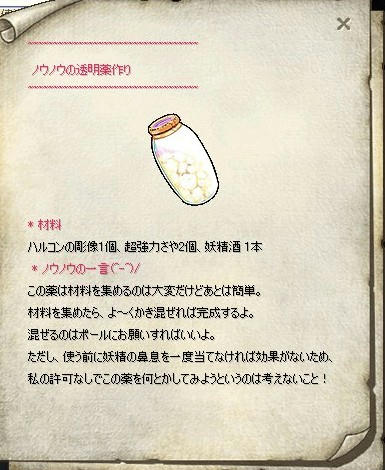 ~~~~~~~~~~~~~~~~~~~~~~~~~~~~
ノウノウの透明薬作り
~~~~~~~~~~~~~~~~~~~~~~~~~~~~
* 材料
ハルコンの彫像1個、超強力さや2個、妖精酒 1本
* ノウノウの一言(^-^)/
この薬は材料を集めるのは大変だけどあとは簡単。
材料を集めたら、よ～くかき混ぜれば完成するよ。
混ぜるのはポールにお願いすればいいよ。
ただし、使う前に妖精の鼻息を一度当てなければ効果がないため、
私の許可なしでこの薬を何とかしてみようというのは考えないこと！